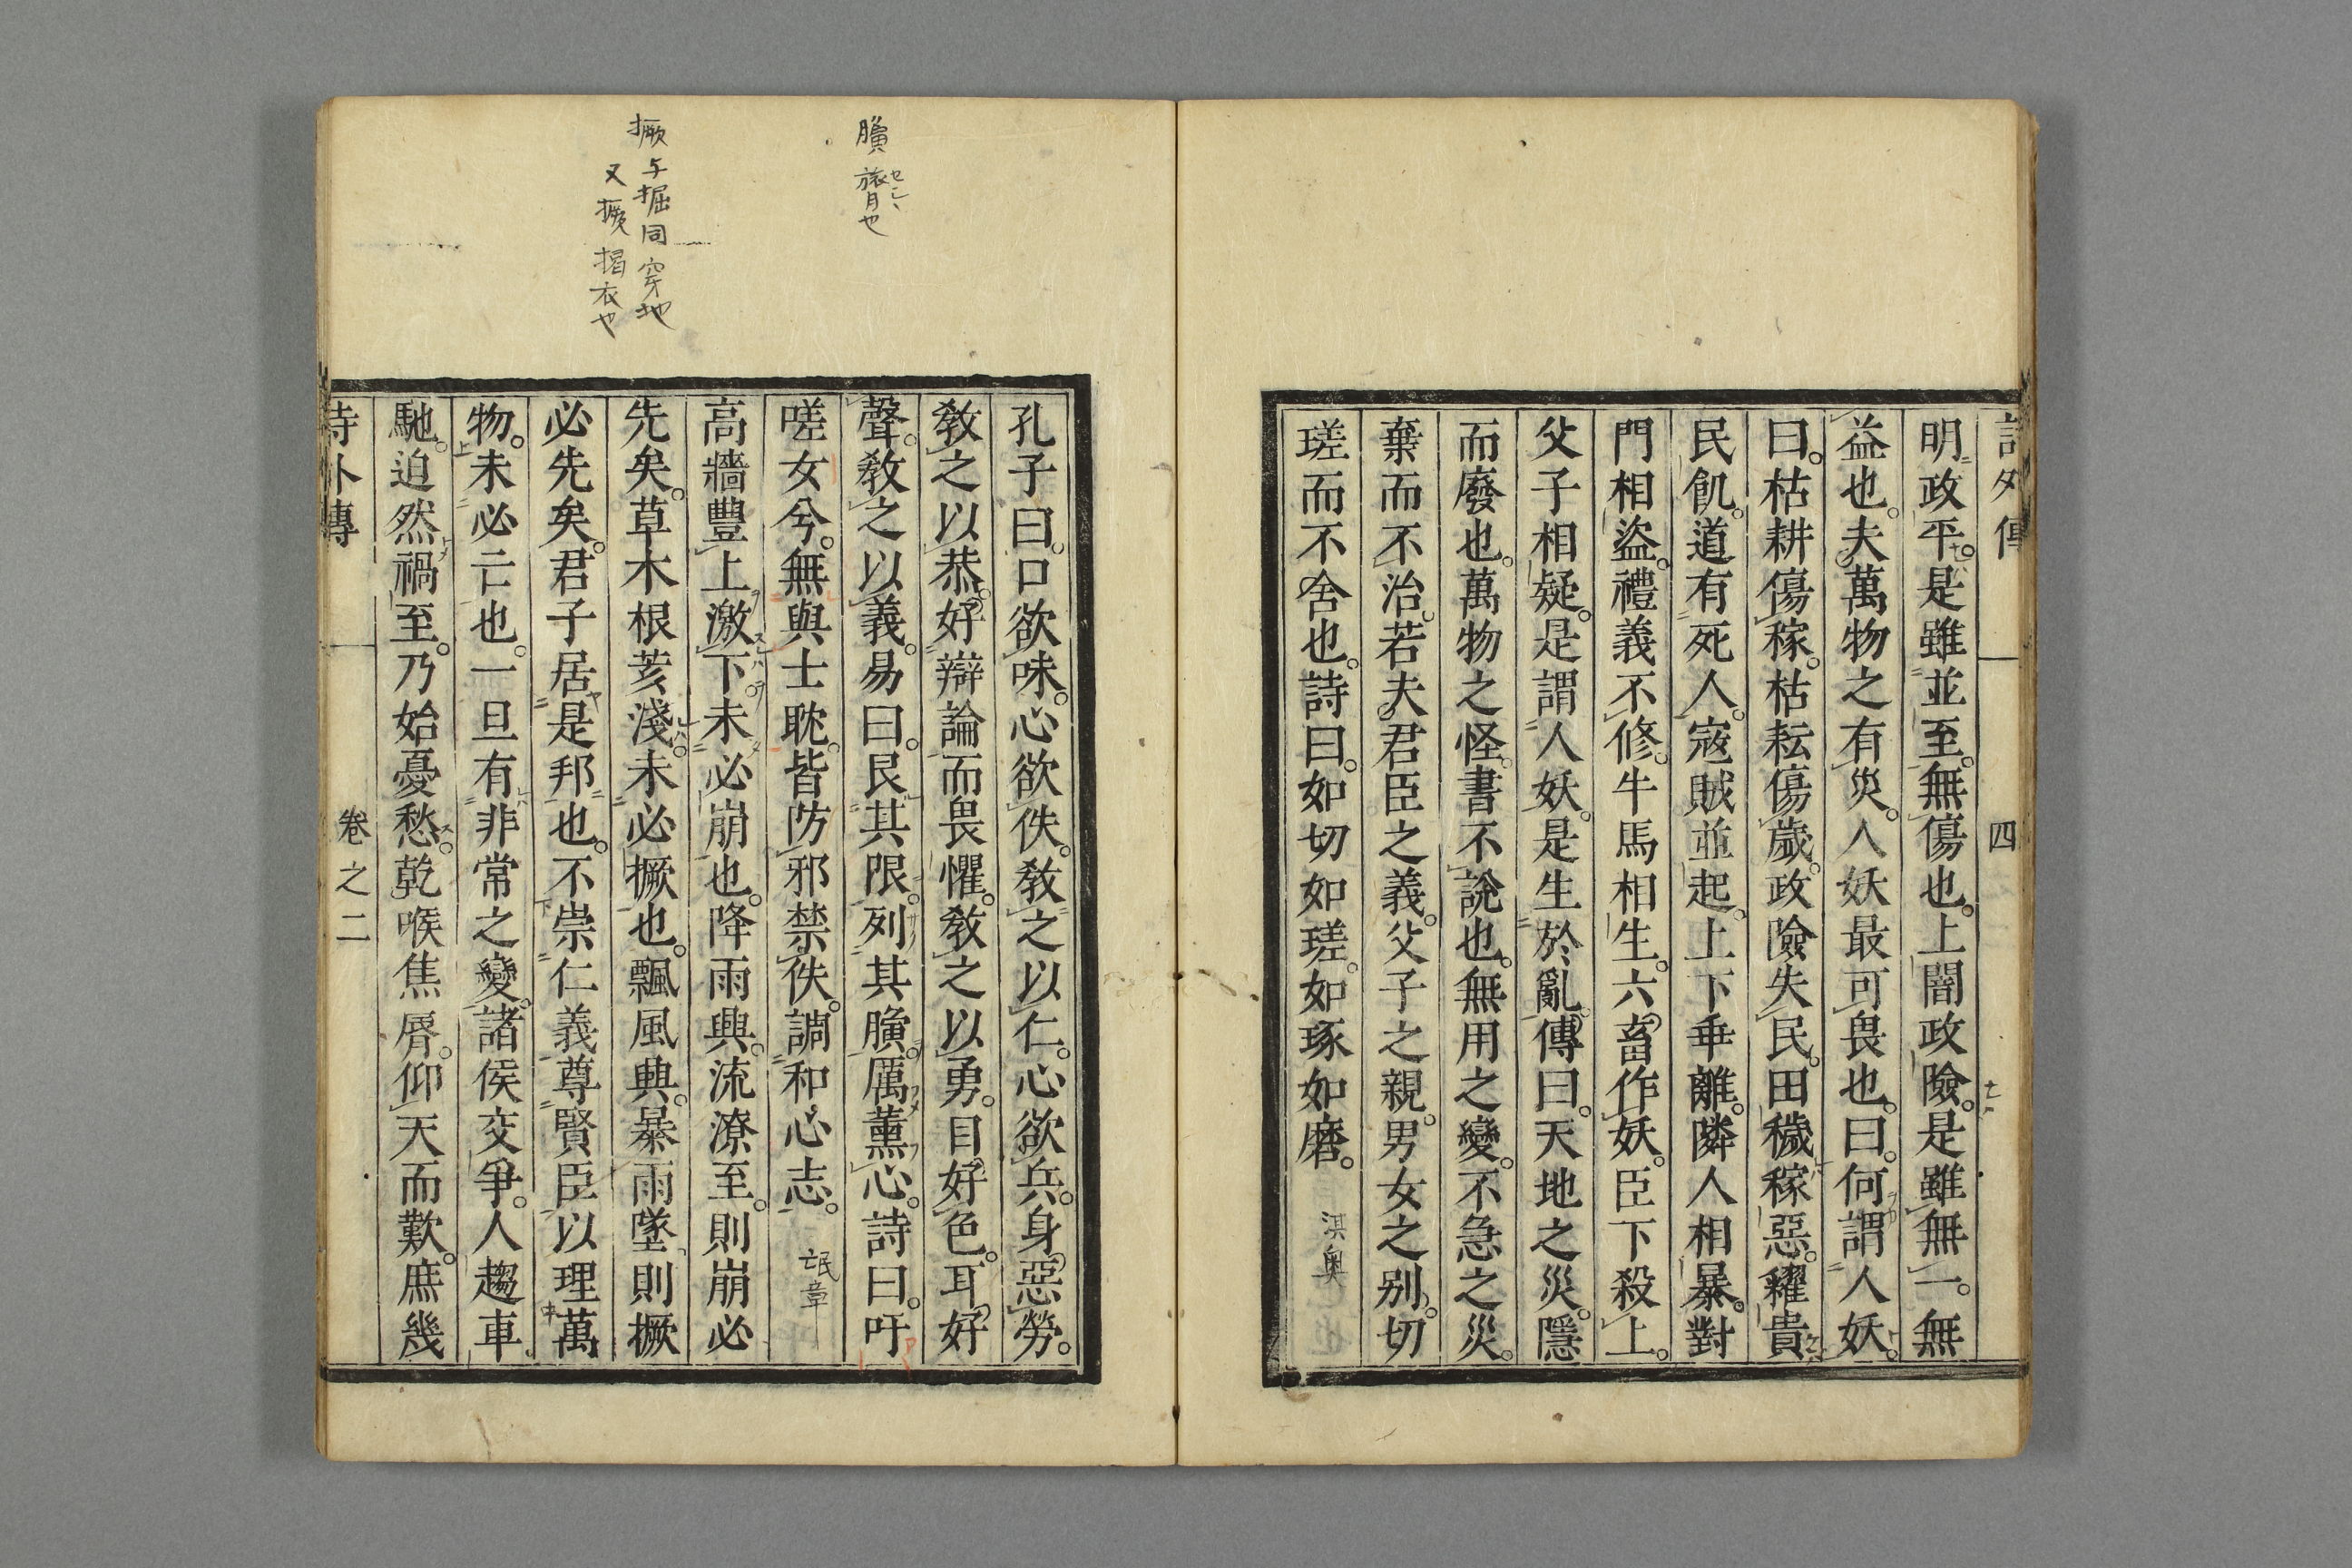 詩外傳
四
明政平是雖並至無傷也上闇政險是雖無一無
益也夫萬物之有災人妖最可畏也曰何謂人妖
曰枯耕傷稼枯耘傷歲政險失民田穢稼惡糴貴
民飢道有死人寇賊並起上下乖離隣人相暴對
門相盜禮義不修牛馬相生六畜作妖臣下殺上
父子相疑是謂人妖是生於亂傳曰天地之災隱
而廢也萬物之怪書不說也無用之變不急之災
棄而不治若夫君臣之義父子之親男女之别切
瑳而不舍也詩曰如切如瑳如琢如磨
淇奧
孔子曰口欲味心欲佚教之以仁心欲兵身惡勞
教之以恭好辯論而畏懼教之以勇目好色耳好
聲教之以義易曰艮其限列其䐶厲薰心詩曰吁
嗟女兮無與士耽皆防邪禁佚調和心志
氓章
高牆豐上激下未必崩也降雨興流潦至則崩必
先矣草木根荄淺未必撅也飄風興暴雨墜則撅
必先矣君子居是邦也不崇仁義尊賢臣以理萬
物未必亡也一旦有非常之變諸侯交爭人趨車
馳迫然禍至乃始憂愁乾喉焦脣仰天而歎庶幾
詩外傳
卷之二
䐶 膂也
撅与掘同 穿地
又撅 揭衣也